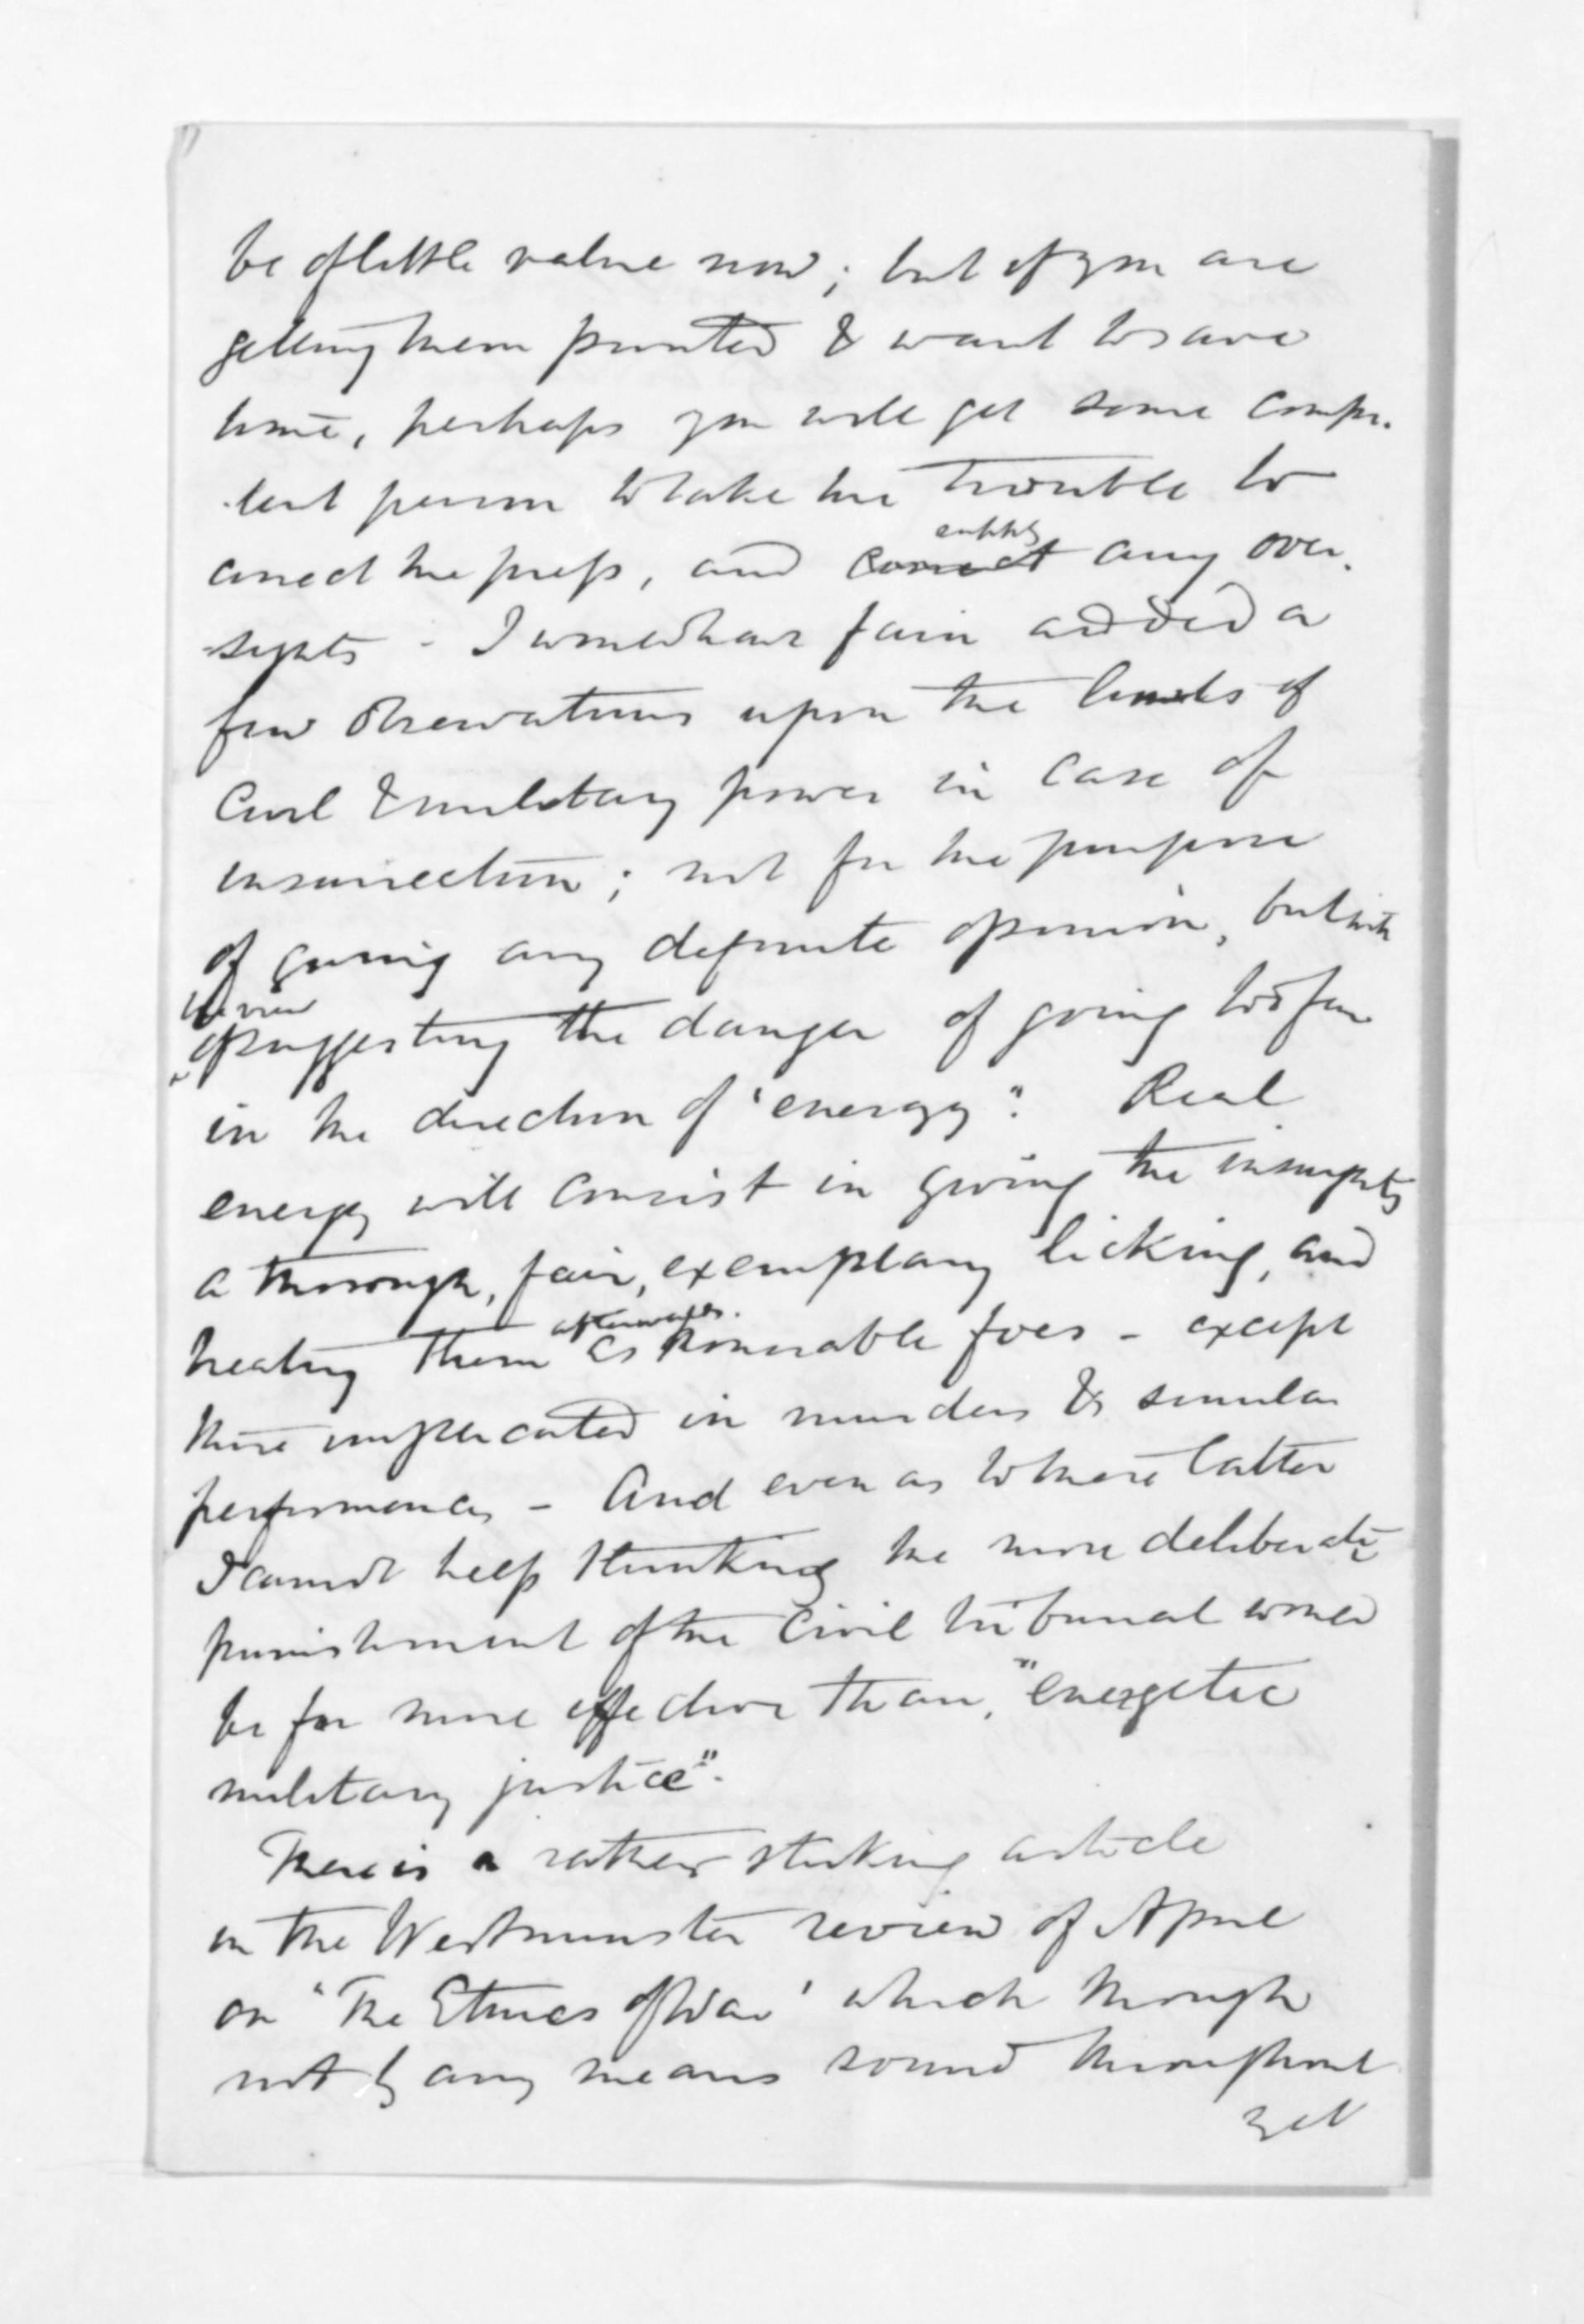 be of little value now; but if you are
getting them printed & want to save
time, perhaps you will get some compe-
-tent person to take the trouble to
correct the press, and correct any over-
rectify
-sights - I would have fain added a
few observations upon the limits of
Civil & military power in case of
insurrection; not for the purpose
of giving any definite opinion, but with
the view
of suggesting the danger of going too far
in the direction of "energy". Real
energy will consist in giving the insurgents
a thorough, fair, exemplary licking, and
treating them as honorable foes - except
afterwards.
those implicated in murders & similar
performances - And even as to these latter
I cannot help thinking the more deliberate
punishment of the Civil tribunal would
be far more effective than, "energetic
military justice".
There is a rather striking article
in the Westminster review of April
on "The Ethics of War' which though
not by any means sound throughout
yet